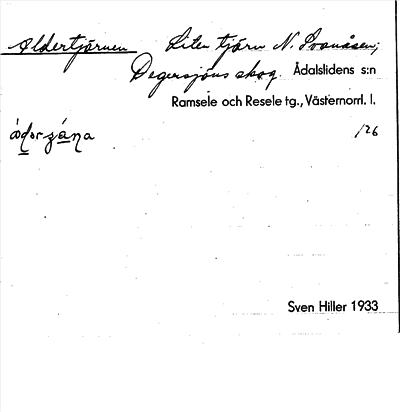 Åldertjärnen Liten tjärn N. Svanåsen;
Degersjöns skog. Ådalslidens s:n
Ramsele och Resele tg., Västernorrl. l.
/26
Sven Hiller 1933